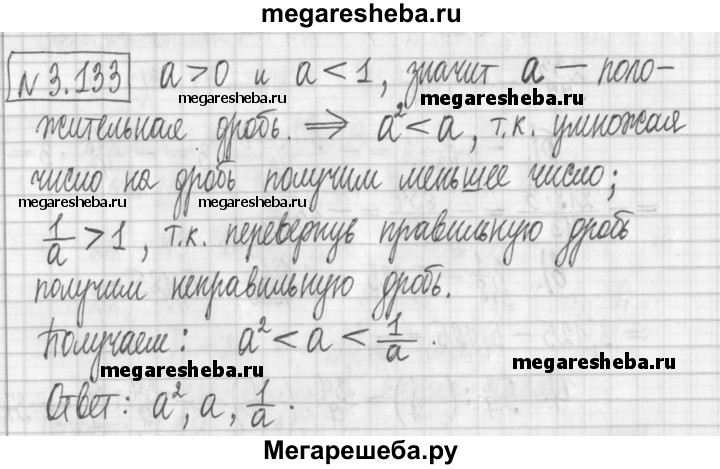 megaresheba.ru
N 3.133 a > 0 и a < 1, значит a — поло-
megaresheba.ru megaresheba.ru
жительная дробь. ⇒ a² < a, т.к. умножая
число на дробь получим меньшее число;
megaresheba.ru megaresheba.ru megaresheba.ru
1/a > 1, т.к. перевернув правильную дробь
получим неправильную дробь.
Получаем: a² < a < 1/a.
megaresheba.ru megaresheba.ru
Ответ: a², a, 1/a.
Мегарешеба.ру